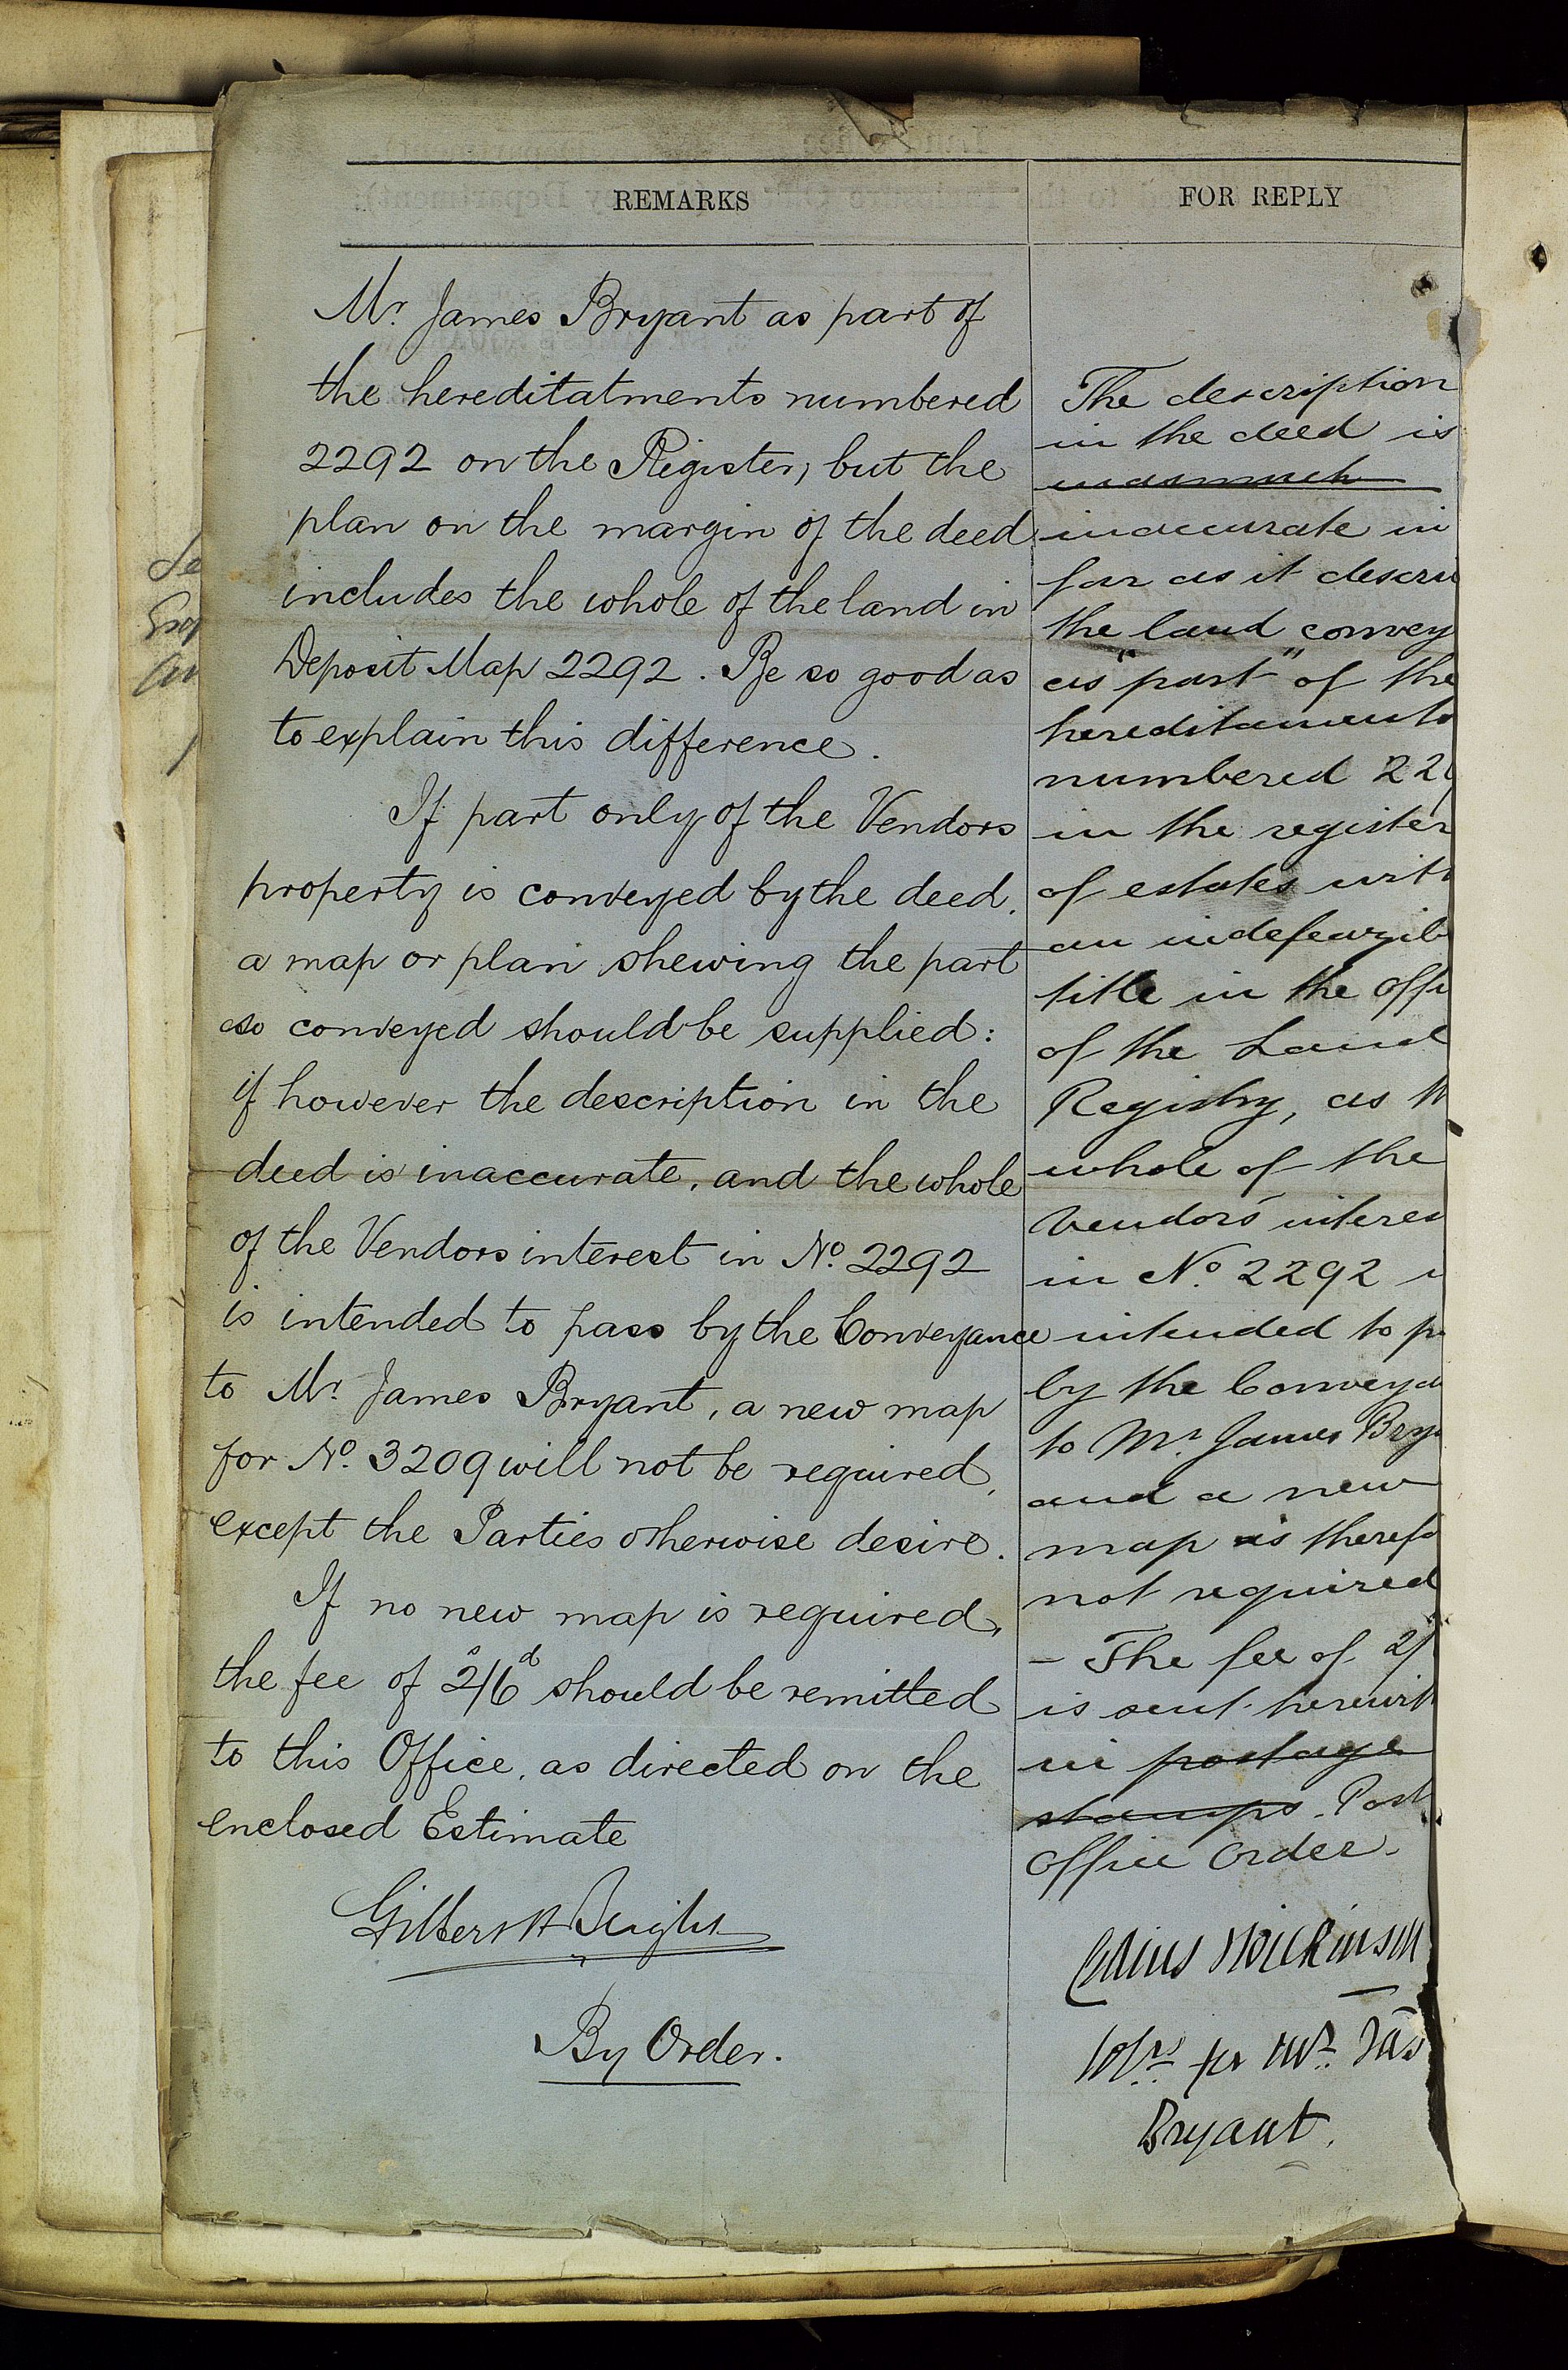 REMARKS
Mr. James Bryant as part of
the hereditatments numbered
2292 on the Register, but the
plan on the margin of the deed
includes the whole of the land in
Deposit Map 2292. Be so good as
to explain this difference.
If part only of the Vendors
property is conveyed by the deed.
a map or plan shewing the part
so conveyed should be supplied:
if however the description in the
deed is inaccurate, and the whole
of the Vendors interest in No. 2292
is intended to pass by the Conveyance
to Mr. James Bryant, a new map
for No. 3209 will not be required,
except the Parties otherwise desire.
If no new map is required,
the fee of 2s/6d should be remitted
to this Office, as directed on the
enclosed Estimate
By Order.
FOR REPLY
The description
in the deed is
inasmuch
inaccurate in
far as it descri
the land convey
as "part" of the
hereditaments
numbered 229
in the register
of estates with
an indefeazib
title in the Offi
of the Land
Registry, as th
whole of the
Vendors' interes
in No. 2292 i
intended to pa
by the Conveya
to Mr. James Brya
and a new
map is therefo
not required
– The fee of 2/
is sent herewith
in postage
stamps. Post
Office Order.
for Mr. Jas
Bryant.